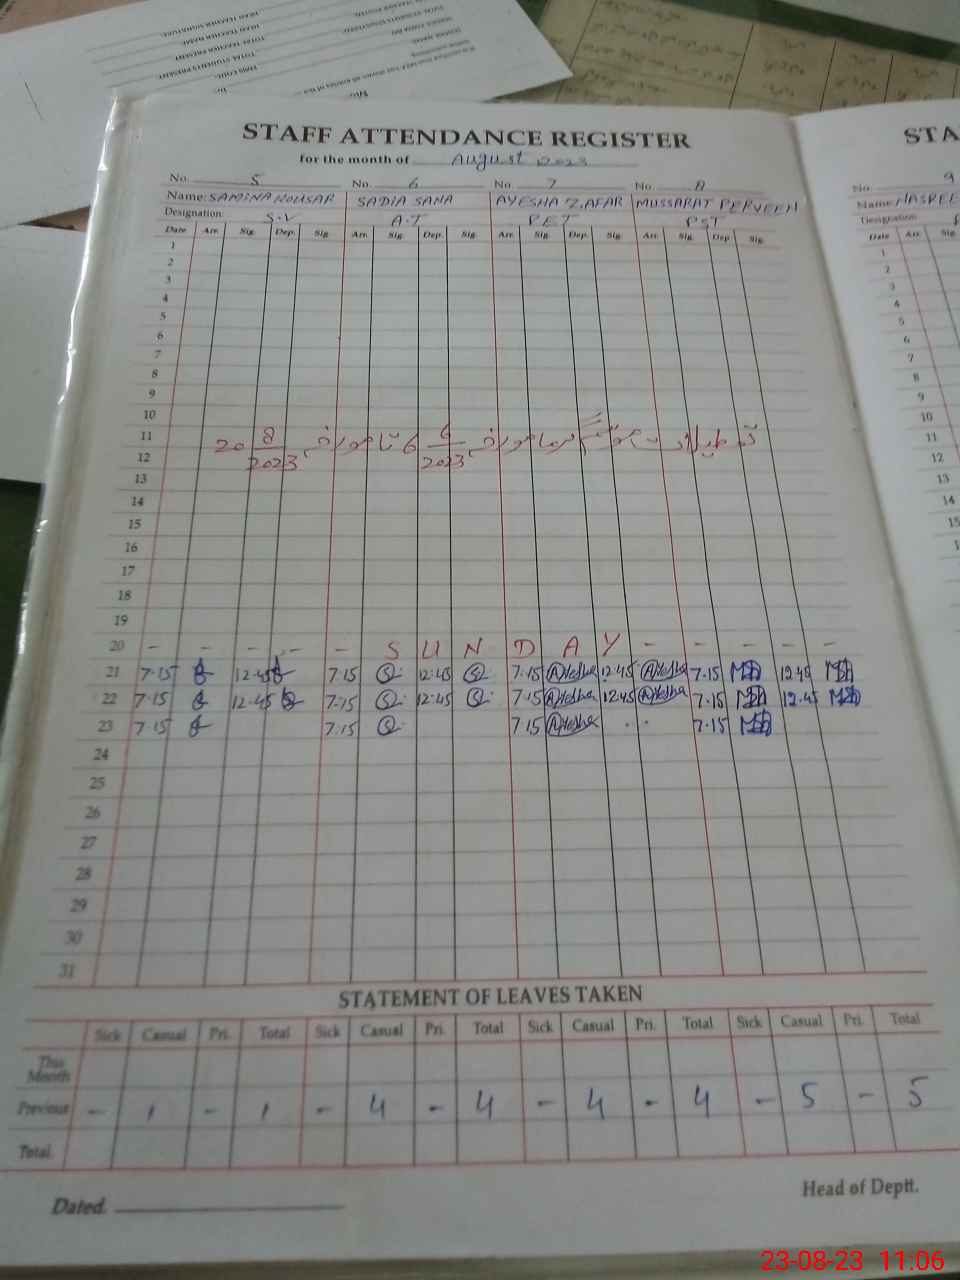 HEAD TEACHER SIGNATURE
HEAD TEACHER NAME
TOTAL TEACHER PRESENT
TOTAL STUDENTS PRESENT
EMIS CODE
STAFF ATTENDANCE REGISTER
for the month of August 2023
No. 5 No. 6 No. 7 No. 8
Name: SAMINA KOUSAR SADIA SANA AYESHA ZAFAR MUSSARAT PERVEEN
Designation S.V A.T P.E.T PST
Date Arr. Sig. Dep. Sig. Arr. Sig. Dep. Sig. Arr. Sig. Dep. Sig. Arr. Sig. Dep. Sig.
1
2
3
4
5
6
7
8
9
10
11
12
تعطیلات موسم گرما مورخہ 6/6/2023 تا مورخہ 20/8/2023
13
14
15
16
17
18
19
20 - - - - - S U N D A Y - - - - -
21 7.15 12.45 7.15 12:45 7.15 Ayesha 12:45 Ayesha 7.15 12.45
22 7.15 12.45 7.15 12.45 7.15 Ayesha 12.45 Ayesha 7.15 12.45
23 7.15 7.15 7.15 Ayesha 7.15
24
25
26
27
28
29
30
31
STATEMENT OF LEAVES TAKEN
Sick Casual Pri. Total Sick Casual Pri. Total Sick Casual Pri. Total Sick Casual Pri. Total
This Month
Previous - 1 - 1 - 4 - 4 - 4 - 4 - 5 - 5
Total
Dated.
Head of Deptt.
STA
No. 9
Name:
Designation
Date Arr. Sig.
1
2
3
4
5
6
7
8
9
10
11
12
13
14
15
23-08-23 11:06